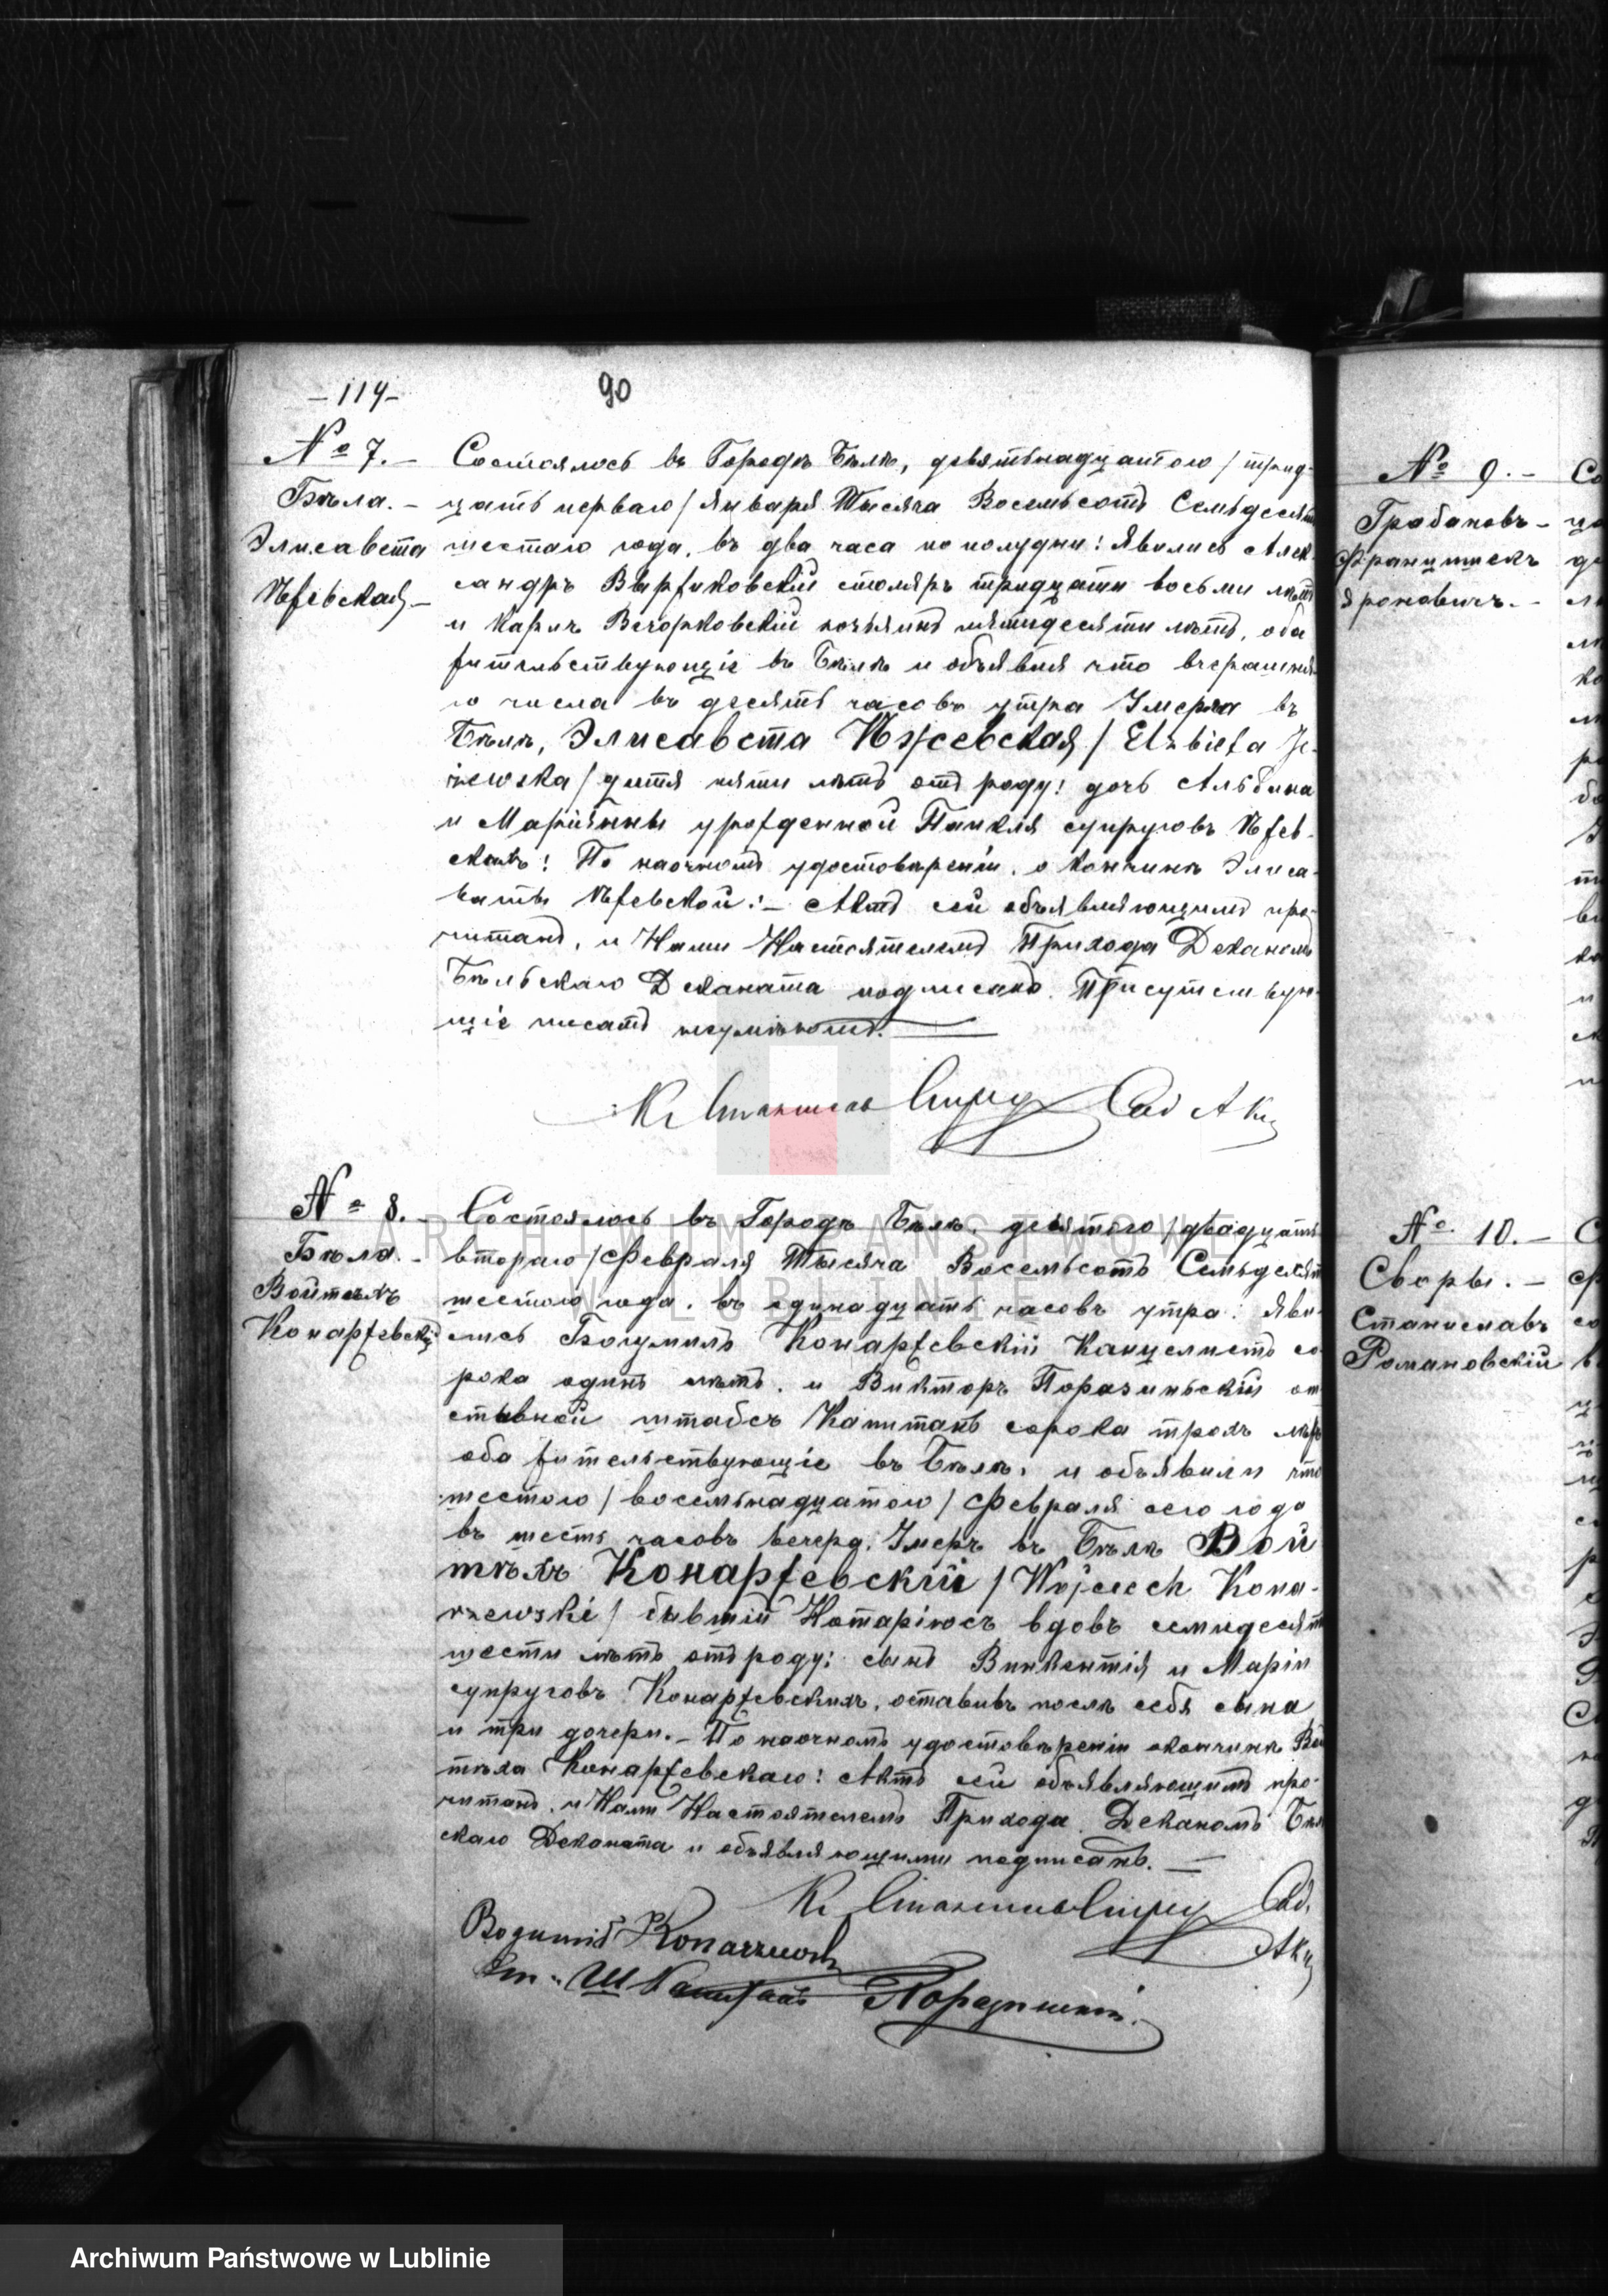 -114-
90
№ 7. -
Бѣла. -
Элисавета
Ѣжевская -
Состоялось въ Городѣ Бѣлѣ, девятьнадцатого / трид-
цать перваго / Января Тысяча Восемьсотъ Семьдесят
шестаго года, въ два часа по полудни: Явились Алек-
сандръ столяръ тридцати восьми лѣтъ
и Карлъ пятидесяти лѣтъ, оба
жительствующіе въ Бѣлѣ и объявили что вчерашня-
го числа въ десять часовъ утра Умерла въ
Бѣлѣ, Элисавета Ѣжевская / Elżbieta Je-
żewska / дитя пяти лѣтъ отъ роду: дочь Альбина
и Маріанны урожденной супруговъ Ѣжев-
скихъ: По наочномъ удостовѣреніи, о кончинѣ Элиса-
веты Ѣжевской: - Актъ сей объявляющимъ про-
читанъ, и Нами Настоятелемъ Прихода Деканомъ
Бѣльскаго Деканата подписанъ. Присутствую-
щіе писать неумѣютъ.
№ 8. -
Бѣла. -
Войтѣхъ
Конаржевскій
Состоялось въ Городѣ Бѣлѣ, десятого / двадцать
втораго / Февраля Тысяча Восемьсотъ Семьдесят
шестого года, въ одинадцать часовъ утра: Яви-
лись Богумилъ Конаржевскій Канцелистъ со
рока одинъ лѣтъ, и Викторъ Поразиньскій от
ставной штабсъ Капитанъ сорока трохъ лѣтъ
оба жительствующіе въ Бѣлѣ, и объявили что
шестого / восемьнадцатого / Февраля сего года
въ шесть часовъ вечера, Умеръ въ Бѣлѣ Вой
тѣхъ Конаржевскій / Wojciech Kona-
rzewski / бывшій Нотаріюсъ вдовъ семидесят
шести лѣтъ отъ роду: сынъ Винкентія и Маріи
супруговъ Конаржевскихъ, оставивъ послѣ себя сына
и три дочери. - По наочномъ удостовѣреніи окончинѣ Вой
тѣха Конаржевскаго: Актъ сей объявляющимъ про-
читанъ, и Нами Настоятелемъ Прихода Деканомъ Бѣль
скаго Деканата и объявляющими подписанъ. -
№ 9. -
Грабановъ -
Францишекъ
Яроновичъ. -
№ 10. -
Своры. -
Станиславъ
Романовскій
ARCHIWUM PAŃSTWOWE
W LUBLINIE
Archiwum Państwowe w Lublinie